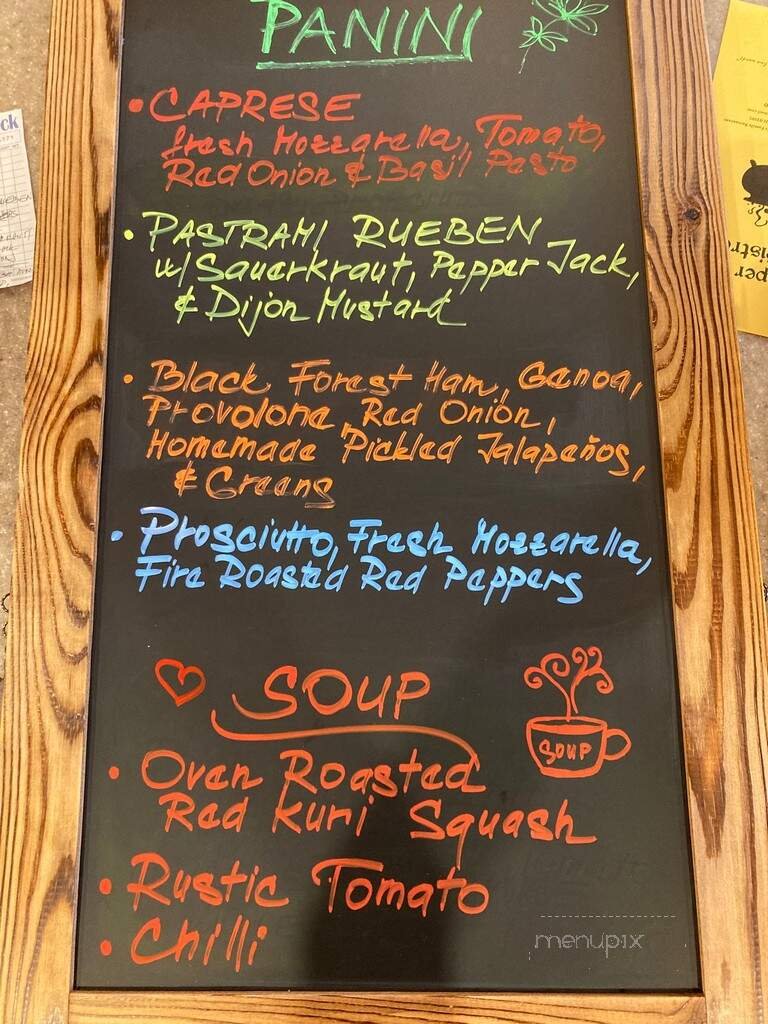 PANINI
• CAPRESE
fresh Mozzarella, Tomato,
Red Onion & Basil Pesto
• PASTRAMI RUEBEN
w/ Sauerkraut, Pepper Jack,
& Dijon Mustard
• Black Forest Ham, Genoa,
Provolone, Red Onion,
Homemade Pickled Jalapeños,
& Greens
• Prosciutto, Fresh Mozzarella,
Fire Roasted Red Peppers
SOUP
SOUP
• Oven Roasted
Red Kuri Squash
• Rustic Tomato
• Chilli
menupix